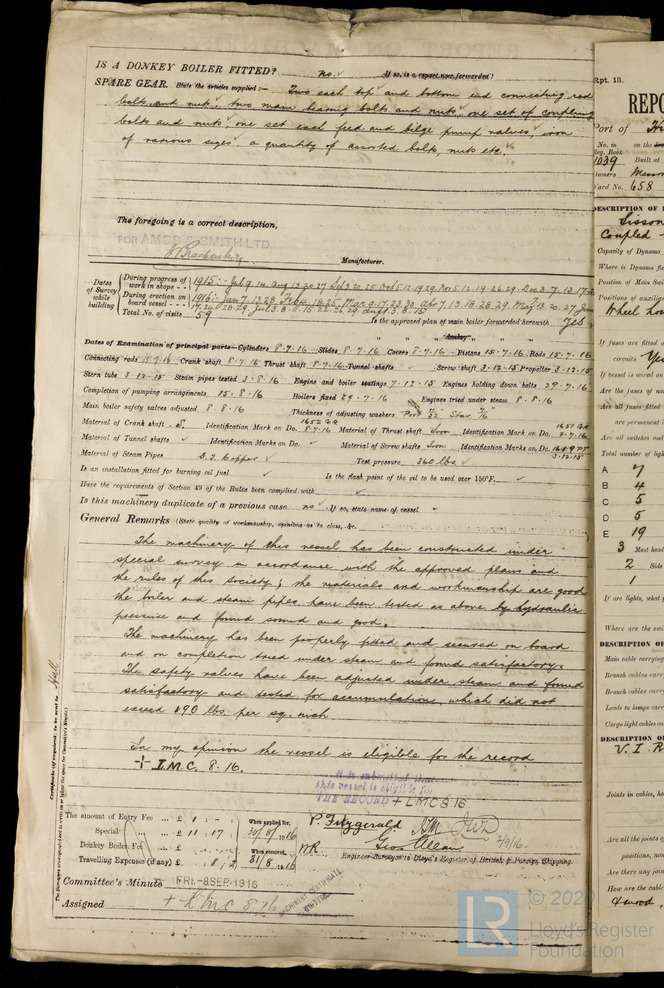 IS A DONKEY BOILER FITTED? no. If so, is a report now forwarded?
SPARE GEAR. State the articles supplied:— Two each top and bottom end connecting rod
bolts and nuts, two main bearing bolts and nuts, one set of coupling
bolts and nuts, one set each feed and bilge pump valves, iron
of various sizes. a quantity of assorted bolts, nuts etc.
The foregoing is a correct description,
FOR AMOS & SMITH LTD.
Manufacturer.
Dates of Survey while building
During progress of work in shops - - 1915:- July 9. 14. Aug 13. 20. 27
During erection on board vessel - - - 1916:- Jan 7. 13. 28
Total No. of visits 59
Is the approved plan of main boiler forwarded herewith Yes
" " " donkey " " "
Dates of Examination of principal parts—Cylinders 8.7.16 Slides 8.7.16 Covers 8.7.16 Pistons 15.7.16 Rods 15.7.16
Connecting rods 15.7.16 Crank shaft 8.7.16 Thrust shaft 8.7.16 Tunnel shafts Screw shaft 3.12.15 Propeller 3.12.15
Stern tube 3.12.15 Steam pipes tested 3.8.16 Engine and boiler seatings 7.12.15 Engines holding down bolts 29.7.16
Completion of pumping arrangements 15.8.16 Boilers fixed 29.7.16 Engines tried under steam 8.8.16
Main boiler safety valves adjusted 8.8.16 Thickness of adjusting washers
Material of Crank shaft S. Identification Mark on Do. 8.7.16 Material of Thrust shaft Iron Identification Mark on Do. 8.7.16
Material of Tunnel shafts Identification Marks on Do. Material of Screw shafts Iron Identification Marks on Do. 3.12.15
Material of Steam Pipes S.D. Copper Test pressure 360 lbs.
Is an installation fitted for burning oil fuel Is the flash point of the oil to be used over 150°F.
Have the requirements of Section 49 of the Rules been complied with
Is this machinery duplicate of a previous case no If so, state name of vessel
General Remarks (State quality of workmanship, opinions as to class, &c.
The machinery of this vessel has been constructed under
special survey in accordance with the approved plans and
the rules of this Society; the materials and workmanship are good
the boiler and steam pipes have been tested as above by hydraulic
pressure and found sound and good.
The machinery has been properly fitted and secured on board
and on completion tried under steam and found satisfactory.
The safety valves have been adjusted under steam and found
satisfactory and tested for accumulation, which did not
exceed 190 lbs. per sq. inch
In my opinion the vessel is eligible for the record
+ L.M.C. 8.16.
It is submitted that
this vessel is eligible for
THE RECORD + LMC 8.16.
The amount of Entry Fee .. £ 1 : - :
Special .. £ 11 : 17 :
Donkey Boiler Fee .. £
Travelling Expenses (if any) £ : 8 / 2
When applied for, 30/8/1916
When received, 31/8/1916
P. Fitzgerald
Geo Allan
2/9/16.
Engineer Surveyor to Lloyd's Register of British & Foreign Shipping.
Committee's Minute FRI. - 8 SEP. 1916
Assigned + LMC 8.16
MACHINERY CERTIFICATE
WRITTEN
Certificate (if required) to be sent to Hull
Rpt. 13.
REPO
Port of
No. in Reg. Book on the
1039 Built at
Owners Messrs
Yard No. 658
DESCRIPTION OF
Sisson
Coupled
Capacity of Dynamo
Where is Dynamo fix
Position of Main Swi
Positions of auxiliar
Wheel hou
If fuses are fitted
circuits Yes
If vessel is wired on
Are the fuses of non
Are all fuses fitted
are permanent
Are all switches and
Total number of ligh
A 7
B 4
C 5
D 5
E 19
3 Mast head
2 Side
1
If arc lights, what p
Where are the swi
DESCRIPTION OF
Main cable carrying
Branch cables carry
Branch cables carry
Leads to lamps carry
Cargo light cables ca
DESCRIPTION OF
V.I.R
Joints in cables, ho
Are all the joints of
positions, non
Are there any join
How are the cable
© 2020
LR
Lloyd's Register
Foundation